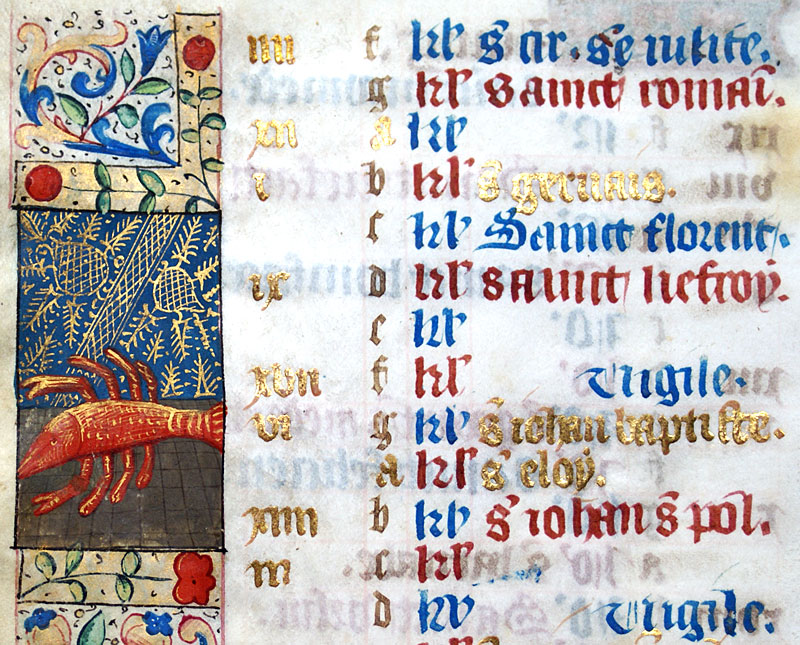 iiii f kl' s' cir. se iulite.
g kl' sainct romai.
xii a kl'
i b kl' s' geruais.
c kl' Sainct florent.
ix d kl' sainct liefroy.
e kl'
xvii f kl' Vigile.
vi g kl' s' iohan baptiste.
a kl' s' eloy.
xiiii b kl' s' iohan s' pol.
iii c kl'
d kl' Vigile.